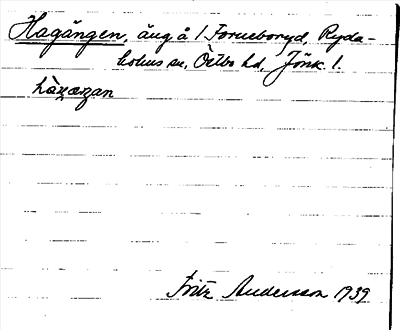 Hagängen, äng å 1 Forneboryd, Ryda-
holms sn, Östbo hd, Jönk. l.
hàgæŋan
Fritz Andersson 1939